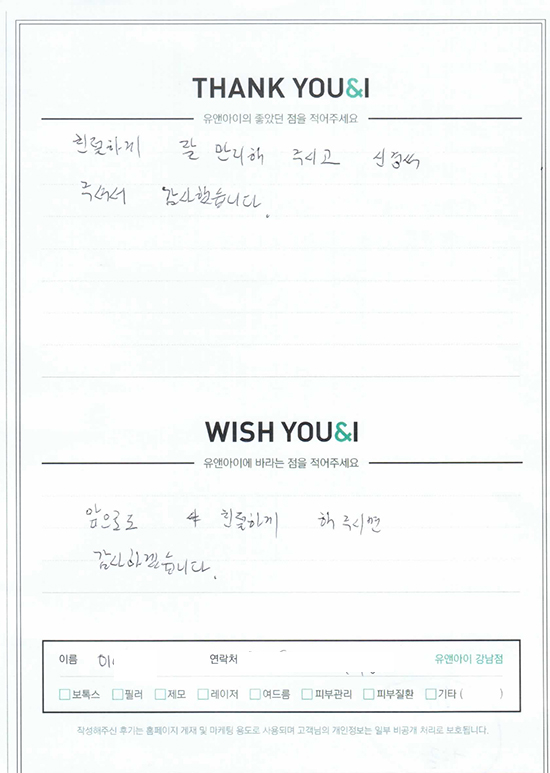 THANK YOU&I
유앤아이의 좋았던 점을 적어주세요
친절하게 잘 관리해 주시고 신경써
주셔서 감사했습니다.
WISH YOU&I
유앤아이에 바라는 점을 적어주세요
앞으로도 친절하게 해 주시면
감사하겠습니다.
이름 연락처 유앤아이 강남점
보톡스 필러 제모 레이저 여드름 피부관리 피부질환 기타 ( )
작성해주신 후기는 홈페이지 게재 및 마케팅 용도로 사용되며 고객님의 개인정보는 일부 비공개 처리로 보호됩니다.